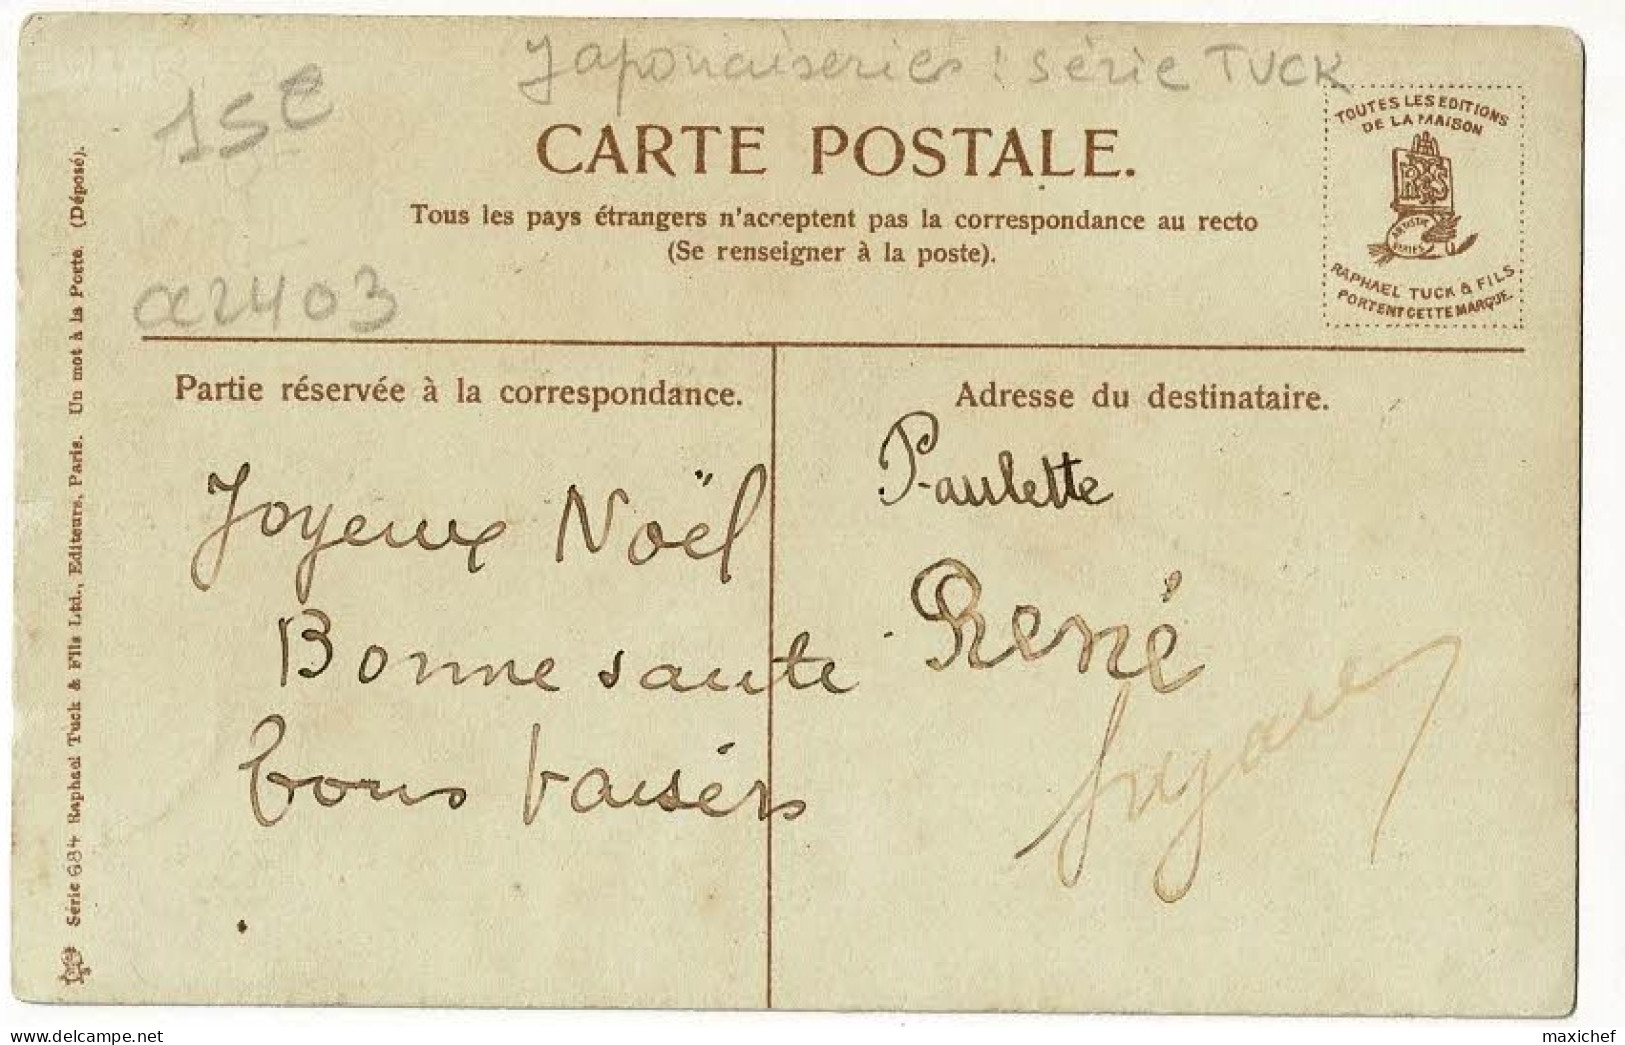 Japonaiseries : série TUCK
15€
CARTE POSTALE.
Tous les pays étrangers n'acceptent pas la correspondance au recto
(Se renseigner à la poste).
TOUTES LES EDITIONS
DE LA MAISON
ARTISTIC
SERIES
RAPHAEL TUCK & FILS
PORTENT CETTE MARQUE.
a2403
Partie réservée à la correspondance.
Joyeux Noël
Bonne sante
bons baisérs
Adresse du destinataire.
Paulette
René
Série 684 Raphael Tuck & Fils Ltd., Editeurs, Paris. Un mot à la Poste. (Déposé).
www.delcampe.net
maxichef